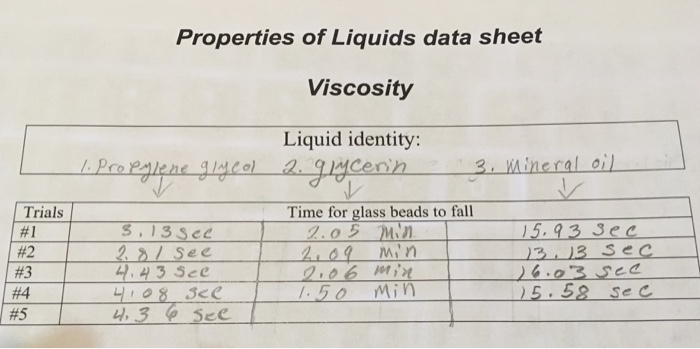 Properties of Liquids data sheet
Viscosity
Liquid identity:
1. Propylene glycol 2. glycerin 3. Mineral oil
Trials Time for glass beads to fall
#1 3.13 sec 2.05 Min 15.93 sec
#2 2.81 sec 2.09 min 13.13 sec
#3 4.43 sec 2.06 min 16.03 sec
#4 4.08 sec 1.50 Min 15.58 sec
#5 4.36 sec